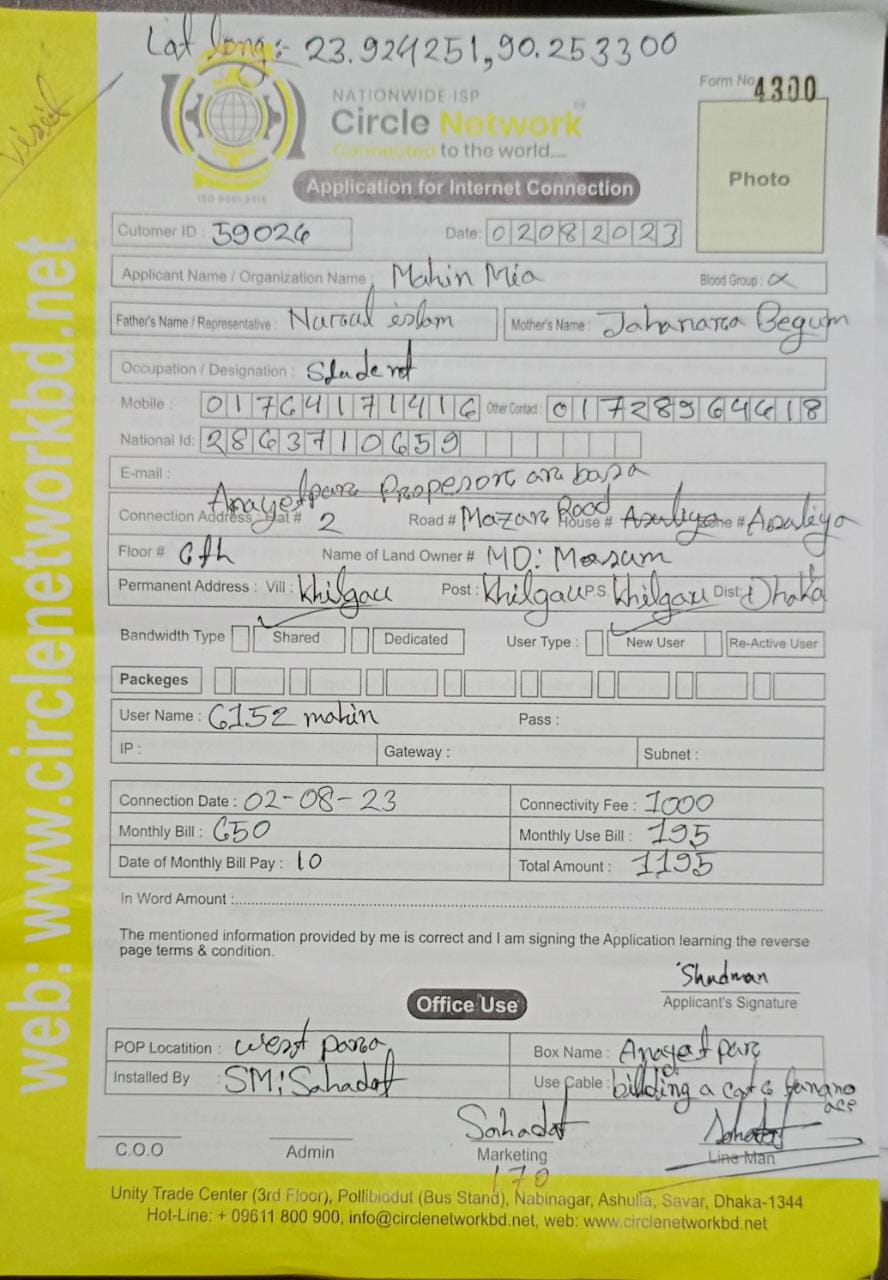 Lat long:- 23.924251,90.253300
visit
Form No 4300
NATIONWIDE ISP
Circle Network
Connected to the world.....
ISO 9001:2015
Photo
Application for Internet Connection
Cutomer ID : 59026 Date: 02082023
Applicant Name / Organization Name : Mahin Mia Blood Group :
Father's Name / Representative : Nurul islam Mother's Name : Jahanara Begum
Occupation / Designation : Student
Mobile : 01764171416 Other Contact : 01728964618
National Id: 2863710659
E-mail :
Anayetpur Propesor ar basa
Connection Address : Flat # 2 Road # Mazar Rood House # Asuliya Zone # Asuliya
Floor # 6th Name of Land Owner # MD: Masum
Permanent Address : Vill : Khilgau Post : Khilgau P.S. Khilgau Dist: Dhaka
Bandwidth Type Shared Dedicated User Type : New User Re-Active User
Packeges
User Name : 6152 mahin Pass :
IP : Gateway : Subnet :
Connection Date : 02-08-23 Connectivity Fee : 1000
Monthly Bill : 650 Monthly Use Bill : 195
Date of Monthly Bill Pay : 10 Total Amount : 1195
In Word Amount :
The mentioned information provided by me is correct and I am signing the Application learning the reverse
page terms & condition.
Shadman
Applicant's Signature
Office Use
POP Locatition : west para Box Name : Anayet par
Installed By : SM: Sahadat Use Cable : bilding a cat 6
Sahadat Sahadat
C.O.O Admin Marketing Line Man
170
Unity Trade Center (3rd Floor), Pollibiadut (Bus Stand), Nabinagar, Ashulia, Savar, Dhaka-1344
Hot-Line: + 09611 800 900, info@circlenetworkbd.net, web: www.circlenetworkbd.net
web: www.circlenetworkbd.net